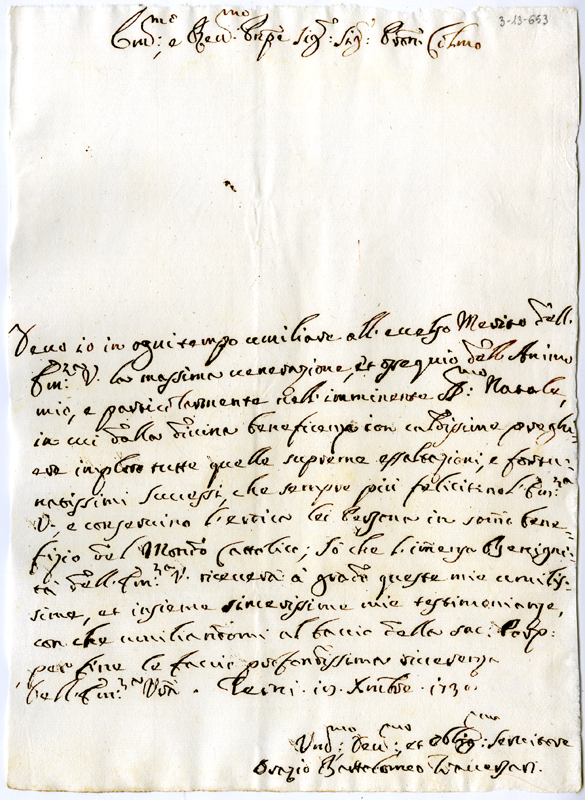 3-13-653
Em:mo e Rev:mo Prpe Sig: Sig: Prōn Col:mo
Devo io in ogni tempo umiliare all'eccelso Merito dell'
Em:za V. la massima venerazione, et ossequio dell'Animo
mio, e particolarmente nell'imminente S:mo Natale,
in cui dalla divina beneficenza con caldissime preghi-
ere imploro tutte quelle supreme essaltazioni, e fortu-
natissimi successi, che sempre più felicitino l'Em:za
V., e conservino l'eroica lei Persona in som̃o bene-
fizio del Mondo Cattolico; Sò che l'im̃ensa Benigni-
tà dell'Em:za V. riceverà à grado queste mie umilis-
sime, et insieme sincerissime mie testimonianze,
con che umiliandomi al baccio della sac: Porp:
per fine le faccio profondissima riverenza
Dell'Em:za Vrã. Terni 19 Xmbre 1730
Um:mo Dev:mo et Oblig:mo Servitore
Orazio Bartolomeo